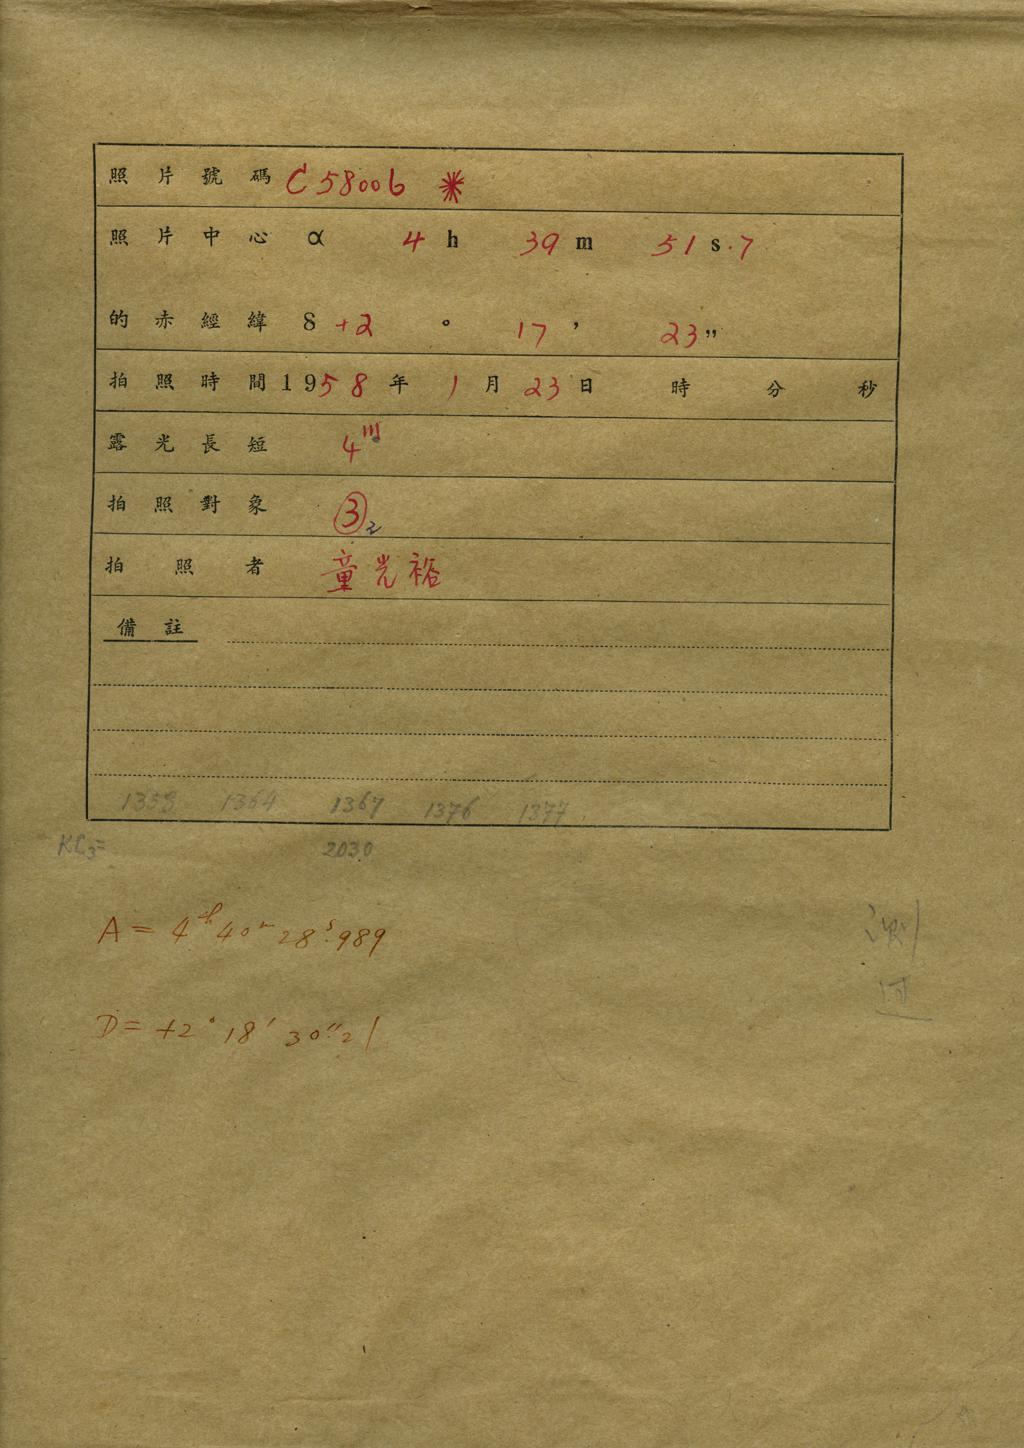 照片號碼 C58006 *
照片中心 α 4 h 39 m 51 s .7
的赤經緯 δ +2 ° 17 ’ 23 ”
拍照時間 1958年 1月 23日 時 分 秒
露光長短 4ᵐ
拍照對象 ③2
拍照者 童光裕
備註
1353 1364 1367 1376 1377
KC3= 2030
A = 4ʰ 40ᵐ 28ˢ.989
D = +2° 18′ 30″.21